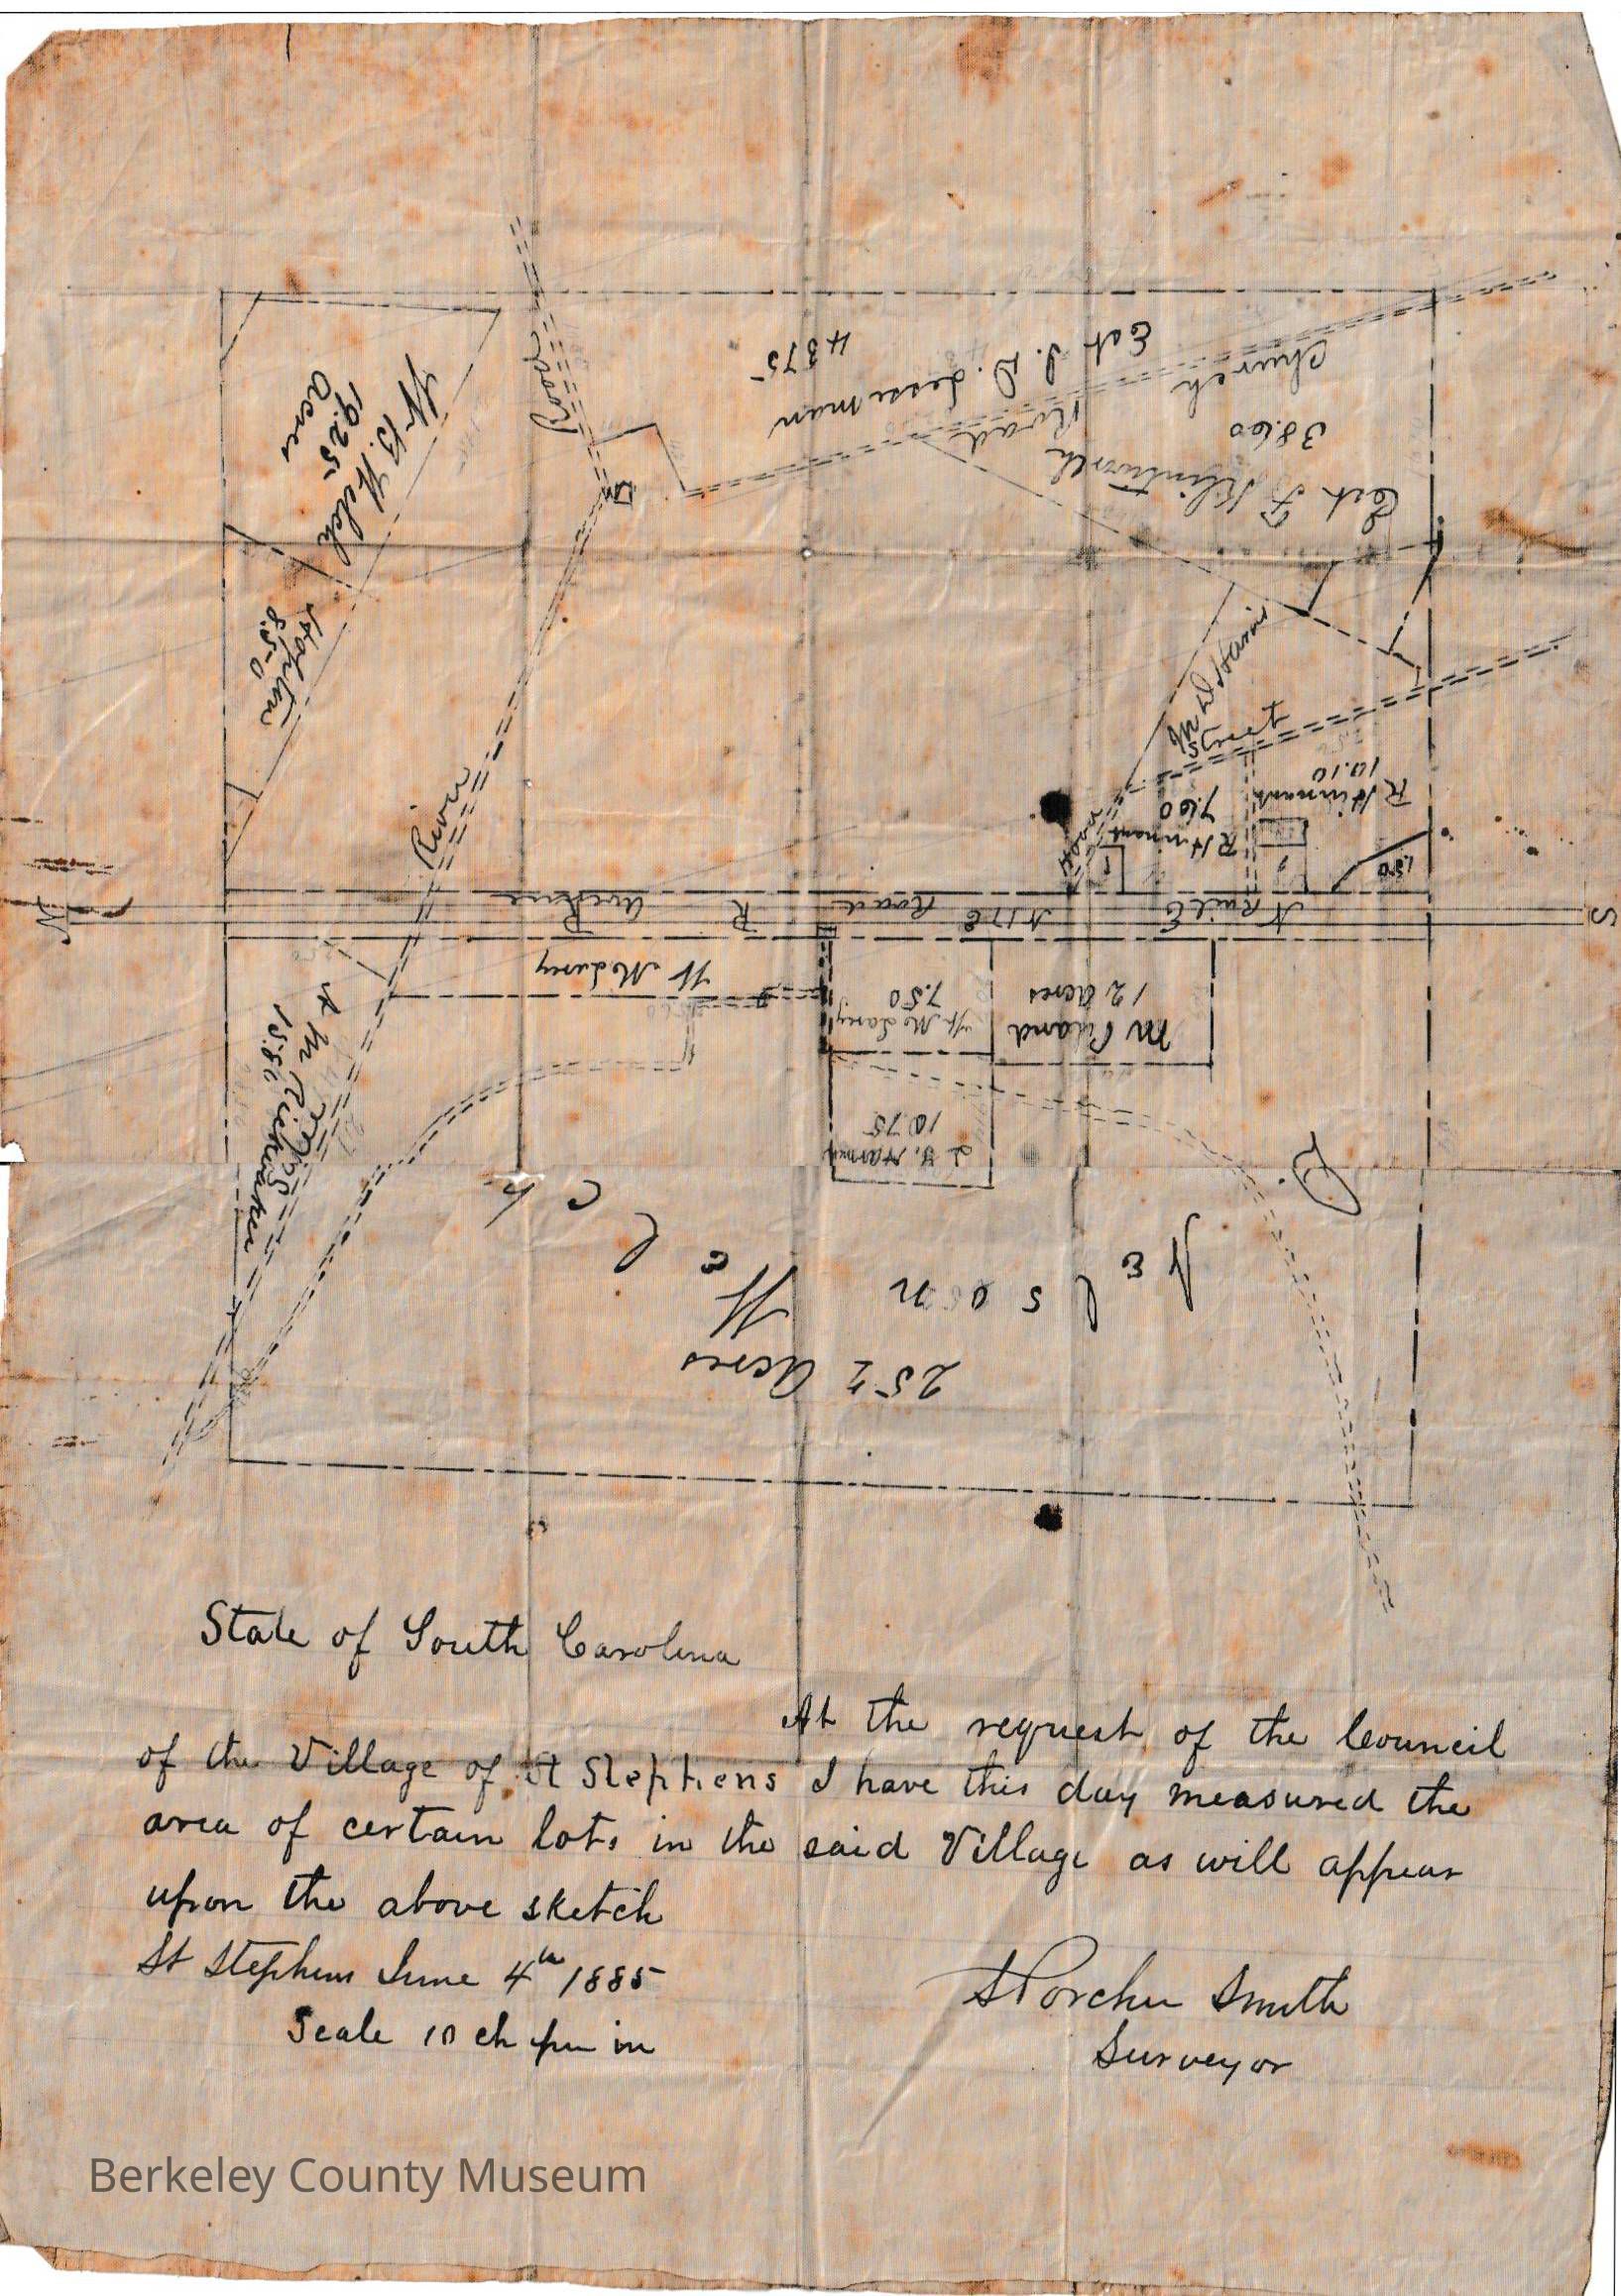 Road
W. B. Welch
19.25
acres
Est I. D.
4875
Church
Road
38.60
Est F
8.50
River
M D Harris
Street
R Hinnant
10.10
R Hinnant
7.60
1.50
N
N E Rail Road
R
S
W
7.50
12 acres
10.75
15.80
P.
Nelson
Welch
252 acres
State of South Carolina
At the request of the Council
of the Village of St Stephens I have this day measured the
area of certain lots in the said Village as will appear
upon the above sketch
St Stephens June 4th 1885
Scale 10 ch per in
S Porcher Smith
Surveyor
Berkeley County Museum